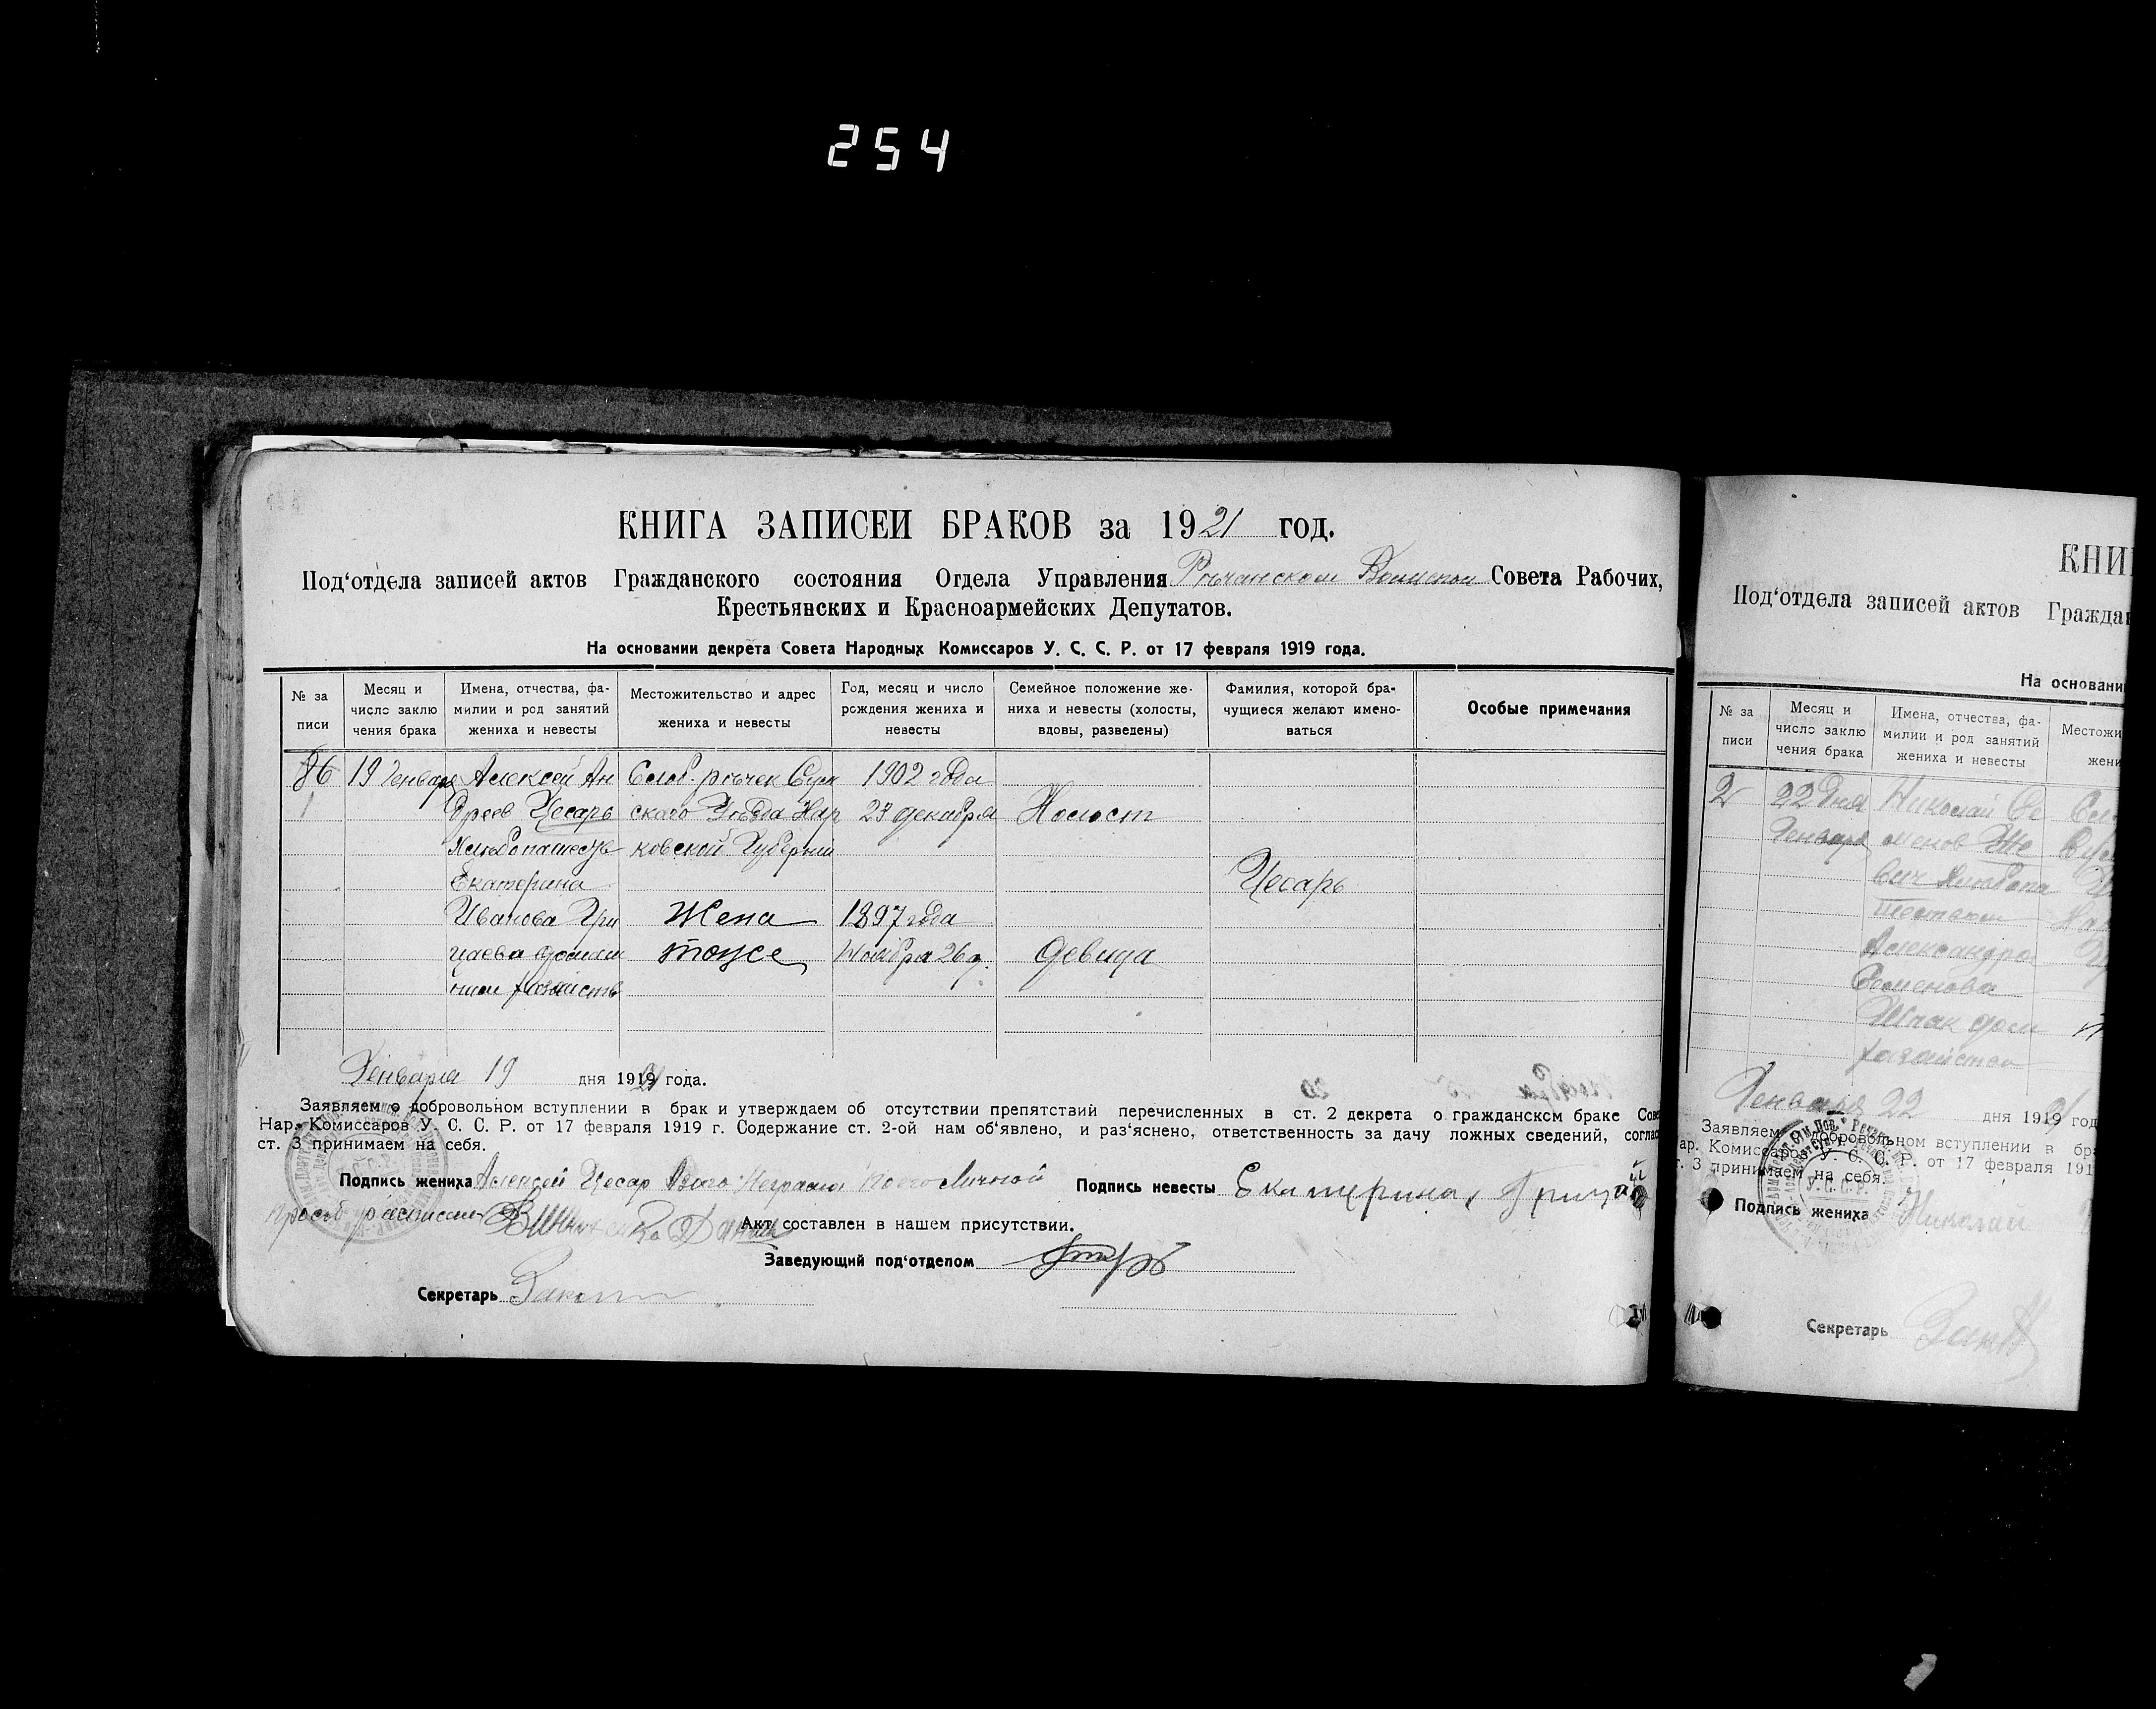 254
КНИГА ЗАПИСЕЙ БРАКОВ за 1921 год.
Под‘отдела записей актов Гражданского состояния Отдела Управления Рѣчанском Волиском Совета Рабочих,
Крестьянских и Красноармейских Депутатов.
На основании декрета Совета Народных Комиссаров У. С. С. Р. от 17 февраля 1919 года.
№ за
писи
Месяц и
число заклю
чения брака
Имена, отчества, фа-
милии и род занятий
жениха и невесты
Местожительство и адрес
жениха и невесты
Год, месяц и число
рождения жениха и
невесты
Семейное положение же-
ниха и невесты (холосты,
вдовы, разведены)
Фамилия, которой бра-
чущиеся желают имено-
ваться
Особые примечания
86 19 Генваря Алексей Ан Слоб. рѣчек Сум 1902 года
1 дреев Цесарь ского Уѣзда Хар 23 декабря Холост
Хлѣбопашец ковской Губернии
Екатерина Цесарь
Иванова Гри Жена 1897 года
цаева домаш тоже Ноября 26 д. девица
ним хозяйств
Генваря 19 дня 1921 года.
Заявляем о добровольном вступлении в брак и утверждаем об отсутствии препятствий перечисленных в ст. 2 декрета о гражданском браке Сов
Нар. Комиссаров У. С. С. Р. от 17 февраля 1919 г. Содержание ст. 2-ой нам об‘явлено, и раз‘яснено, ответственность за дачу ложных сведений, соглас
ст. 3 принимаем на себя.
Подпись жениха Алексей Цесар Неграмот Личной
Подпись невесты Екатерина Грицай
прозб росписался
Акт составлен в нашем присутствии.
Заведующий под‘отделом
Секретарь
КНИ
Под‘отдела записей актов Граждан
На основани
№ за
писи
Месяц и
число заклю
чения брака
Имена, отчества, фа-
милии и род занятий
жениха и невесты
Местожи
жени
2 22 дня Николай Се
Генваря менов Же
вич Хлѣбопа
Александра
Семенова
Шпак дом
хозяйства
Генваря 22 дня 1921 год
Заявляем о добровольном вступлении в бра
ар. Комиссаров У. С. С. Р. от 17 февраля 191
т. 3 принимаем на себя.
Подпись жениха Николай
Секретарь